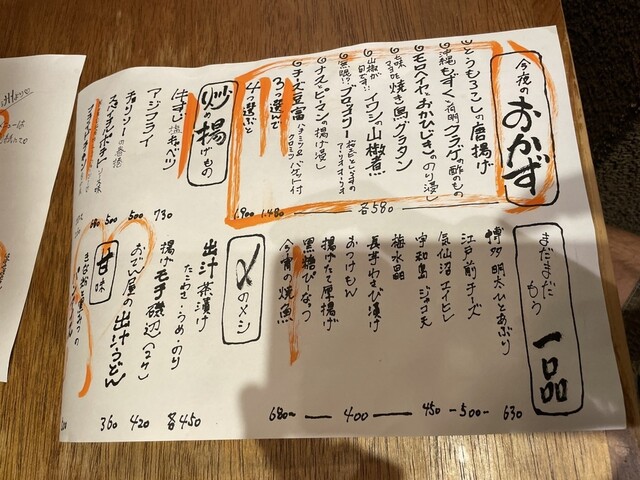 今夜の おかず
とうもろこしの唐揚げ
沖縄もずくと有明クラゲの酢のもの
モロヘイヤとおかひじきののり浸し
七味マヨで 焼き鳥グラタン
山椒が 目玉です!! イワシの山椒煮
無限!? ブロッコリー
ナスとピーマンの揚げ浸し
チーズ豆富 ハチミツ&クロミツ バゲット付
各580
3つ選んで
1,480
4つ選ぶと
1,900
炒め 揚げもの
牛すじ 塩キャベツ
730
アジフライ
500
チョリソーの春捲
500
まだまだ もう 一品
博多 明太ひとあぶり
630
江戸前チーズ
気仙沼 エイヒレ
500
宇和島 ジャコ天
450
梅水晶
長芋わさび漬け
おつけもん
揚げたて厚揚げ
黒糖ぴーなつ
400
今宵の焼魚
680〜
〆のメシ
出汁茶漬け
たらわさ・うめ・のり
各450
揚げモチ磯辺(2ケ)
420
おでん屋の出汁うどん
360
甘味